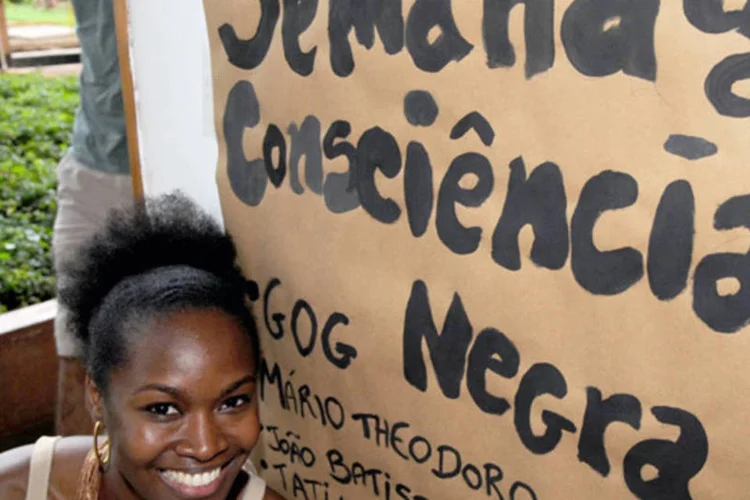 Semana da
Consciência
Negra
GOG
MÁRIO THEODORO
JOÃO BATIS
TATI